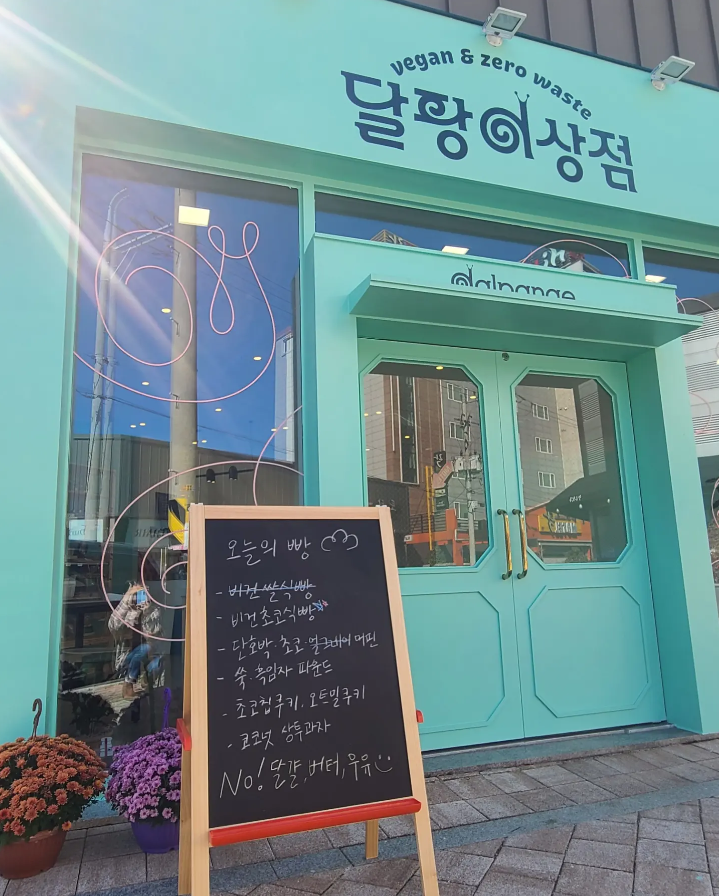 vegan & zero waste
달팡이상점
dalpange
오늘의 빵
- 비건 쌀식빵
- 비건 초코식빵
- 단호박·초코·얼그레이 머핀
- 쑥·흑임자 파운드
- 초코칩쿠키·오트밀쿠키
- 코코넛 상투과자
No! 달걀, 버터, 우유